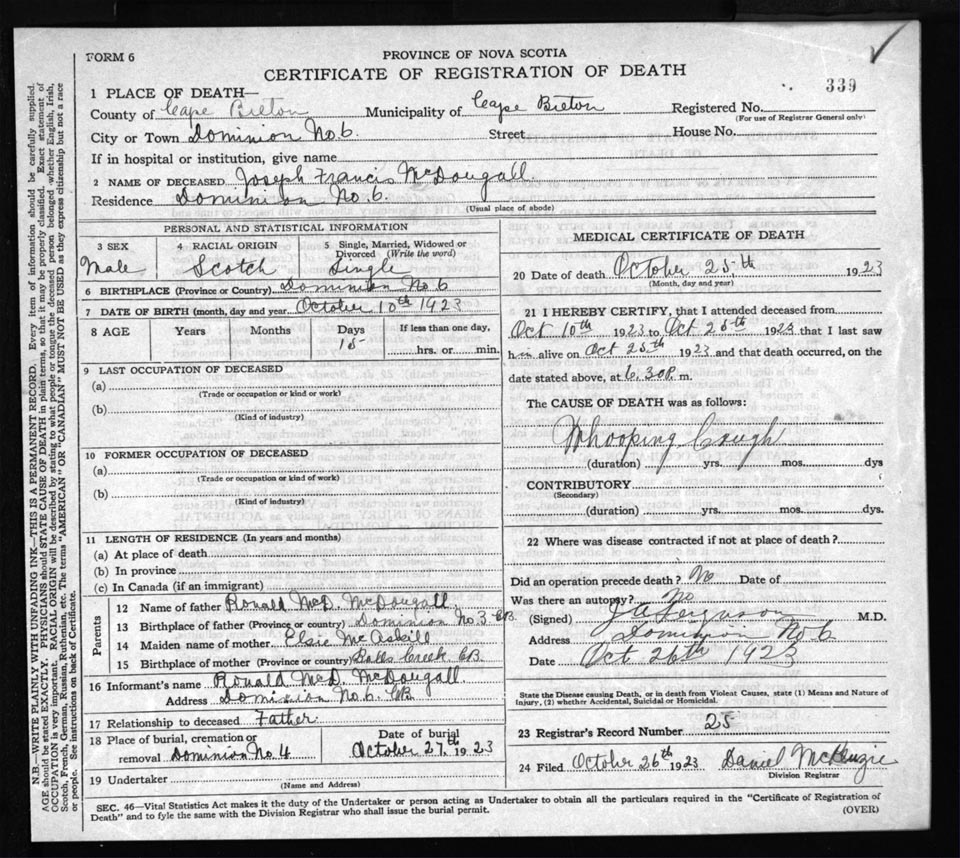 FORM 6
PROVINCE OF NOVA SCOTIA
CERTIFICATE OF REGISTRATION OF DEATH
339
1 PLACE OF DEATH—
County of Cape Breton Municipality of Cape Breton Registered No.
(For use of Registrar General only)
City or Town Dominion No. 6. Street House No.
If in hospital or institution, give name
2 NAME OF DECEASED Joseph Francis McDougall.
Residence Dominion No. 6.
(Usual place of abode)
PERSONAL AND STATISTICAL INFORMATION
3 SEX 4 RACIAL ORIGIN 5 Single, Married, Widowed or Divorced (Write the word)
Male Scotch Single
6 BIRTHPLACE (Province or Country) Dominion No 6
7 DATE OF BIRTH (month, day and year October 10th 1923
8 AGE Years Months Days If less than one day,
15 hrs. or min.
9 LAST OCCUPATION OF DECEASED
(a)
(Trade or occupation or kind or work)
(b)
(Kind of industry)
10 FORMER OCCUPATION OF DECEASED
(a)
(Trade or occupation or kind of work)
(b)
(Kind of industry)
11 LENGTH OF RESIDENCE (In years and months)
(a) At place of death
(b) In province
(c) In Canada (if an immigrant)
Parents
12 Name of father Ronald McD. McDougall
13 Birthplace of father (Province or country) Dominion No. 3 CB.
14 Maiden name of mother Elsie McAskill
15 Birthplace of mother (Province or country) Balls Creek CB.
16 Informant's name Ronald McD. McDougall.
Address Dominion No. 6. CB
17 Relationship to deceased Father.
18 Place of burial, cremation or removal Dominion No. 4
Date of burial October 27th 1923
19 Undertaker
(Name and Address)
MEDICAL CERTIFICATE OF DEATH
20 Date of death October 25th 1923
(Month, day and year)
21 I HEREBY CERTIFY, that I attended deceased from
Oct 10th 1923 to Oct 25th 1923 that I last saw
him alive on Oct 25th 1923 and that death occurred, on the
date stated above, at 6.30 P. m.
The CAUSE OF DEATH was as follows:
Whooping Cough
(duration) yrs. mos. dys
CONTRIBUTORY
(Secondary)
(duration) yrs. mos. dys.
22 Where was disease contracted if not at place of death?
Did an operation precede death? No Date of
Was there an autopsy? No
(Signed) Ferguson M.D.
Address Dominion No 6
Date Oct 26th 1923
State the Disease causing Death, or in death from Violent Causes, state (1) Means and Nature of
Injury, (2) whether Accidental, Suicidal or Homicidal.
23 Registrar's Record Number 25
24 Filed October 26th 1923 Daniel McKenzie
Division Registrar
SEC. 46—Vital Statistics Act makes it the duty of the Undertaker or person acting as Undertaker to obtain all the particulars required in the "Certificate of Registration of
Death" and to fyle the same with the Division Registrar who shall issue the burial permit.
(OVER)
N.B.—WRITE PLAINLY WITH UNFADING INK—THIS IS A PERMANENT RECORD. Every item of information should be carefully supplied.
AGE should be stated EXACTLY. PHYSICIANS should STATE CAUSE OF DEATH in plain terms, so that it may be properly classified. Exact statement of
OCCUPATION is very important. RACIAL ORIGIN will be described by stating to what people or tongue the deceased person belonged whether English, Irish,
Scotch, French, German, Russian, Ruthenian, etc. The terms "AMERICAN" OR "CANADIAN" MUST NOT BE USED as they express citizenship but not a race
or people. See instructions on back of Certificate.